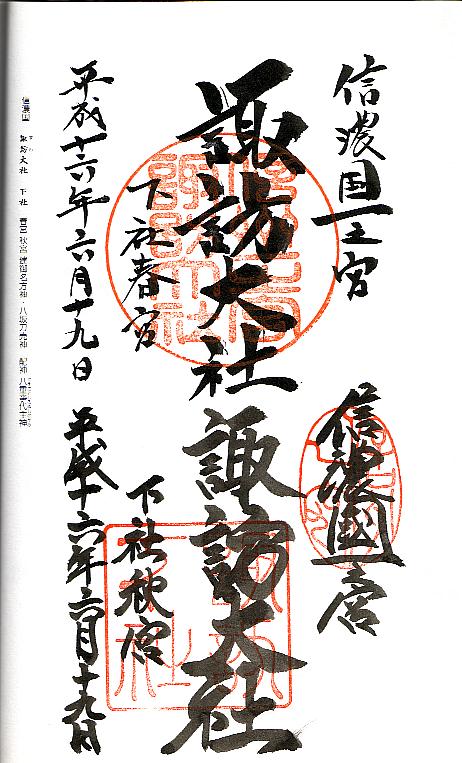 信濃国一之宮
諏訪大社
下社春宮
平成十六年六月十九日
信濃國一宮
諏訪大社
下社秋宮
平成十六年六月十九日
信濃国 諏訪大社 下社 春宮 秋宮 建御名方神・八坂刀売神 配神 八重事代主神